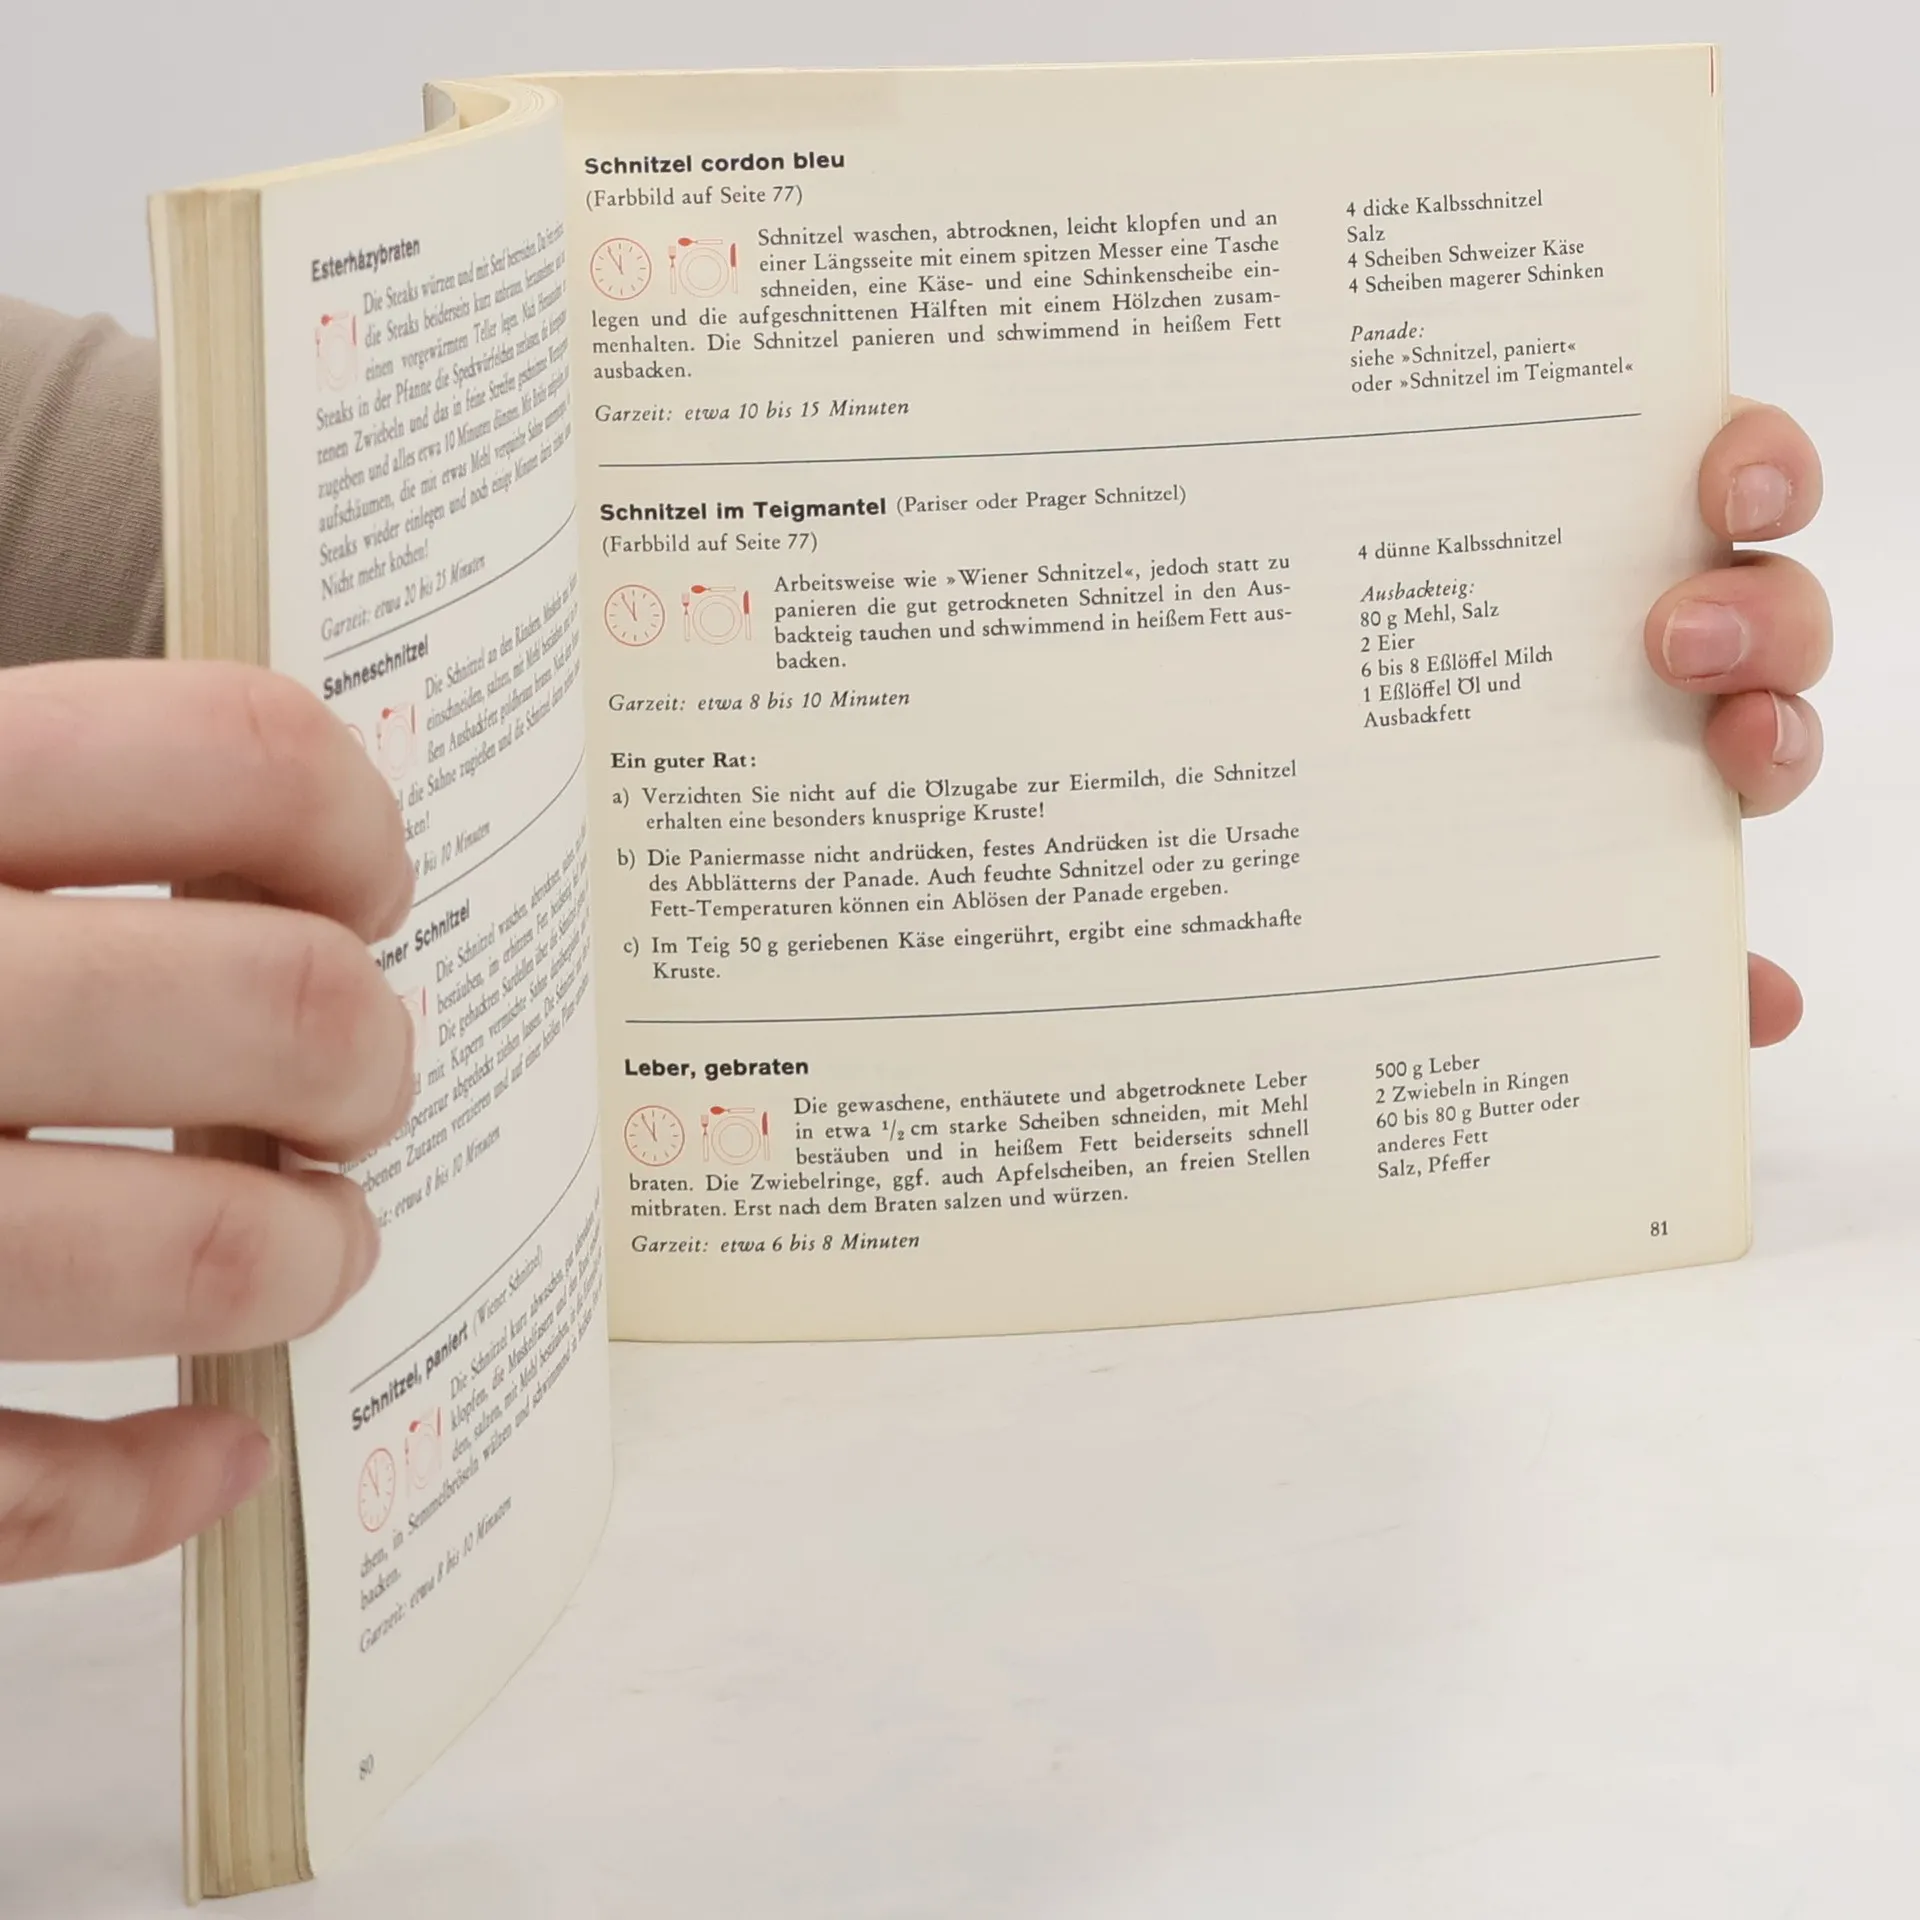 Esterházybraten
Die Steaks würzen und mit Senf bestreichen. Da
die Steaks beiderseits kurz anbraten, herausnehmen
einen vorgewärmten Teller legen. Nach
Steaks in der Pfanne die Speckwürfelchen zerlassen, die
tenen Zwiebeln und das in feine Streifen geschnittene
zugeben und alles etwa 10 Minuten dünsten. Mit Brühe
aufschäumen, die mit etwas Mehl verquirlte Sahne
Steaks wieder einlegen und noch einige Minuten darin
Nicht mehr kochen!
Garzeit: etwa 20 bis 25 Minuten
Sahneschnitzel
Die Schnitzel an den Rändern
einschneiden, salzen, mit Mehl bestäuben
ßen Ausbackfett goldbraun braten. Nach
die Sahne zugießen und die Schnitzel darin
8 bis 10 Minuten
Schnitzel
Die Schnitzel waschen, abtrocknen, salzen
bestäuben, im erhitzten Fett beiderseits
Die gehackten Sardellen über die Schnitzel
mit Kapern vermischte Sahne
abgedeckt ziehen lassen. Die Schnitzel
ebenen Zutaten verzieren und auf einer heißen
etwa 8 bis 10 Minuten
Schnitzel, paniert (Wiener Schnitzel)
Die Schnitzel kurz abwaschen, gut
klopfen, die Muskelfasern und den Rand
den, salzen, mit Mehl bestäuben, in
chen, in Semmelbröseln wälzen und schwimmend in heißem
backen.
Garzeit: etwa 8 bis 10 Minuten
80
Schnitzel cordon bleu
(Farbbild auf Seite 77)
Schnitzel waschen, abtrocknen, leicht klopfen und an
einer Längsseite mit einem spitzen Messer eine Tasche
schneiden, eine Käse- und eine Schinkenscheibe ein-
legen und die aufgeschnittenen Hälften mit einem Hölzchen zusam-
menhalten. Die Schnitzel panieren und schwimmend in heißem Fett
ausbacken.
Garzeit: etwa 10 bis 15 Minuten
4 dicke Kalbsschnitzel
Salz
4 Scheiben Schweizer Käse
4 Scheiben magerer Schinken
Panade:
siehe »Schnitzel, paniert«
oder »Schnitzel im Teigmantel«
Schnitzel im Teigmantel (Pariser oder Prager Schnitzel)
(Farbbild auf Seite 77)
Arbeitsweise wie »Wiener Schnitzel«, jedoch statt zu
panieren die gut getrockneten Schnitzel in den Aus-
backteig tauchen und schwimmend in heißem Fett aus-
backen.
Garzeit: etwa 8 bis 10 Minuten
4 dünne Kalbsschnitzel
Ausbackteig:
80 g Mehl, Salz
2 Eier
6 bis 8 Eßlöffel Milch
1 Eßlöffel Öl und
Ausbackfett
Ein guter Rat:
a) Verzichten Sie nicht auf die Ölzugabe zur Eiermilch, die Schnitzel
erhalten eine besonders knusprige Kruste!
b) Die Paniermasse nicht andrücken, festes Andrücken ist die Ursache
des Abblätterns der Panade. Auch feuchte Schnitzel oder zu geringe
Fett-Temperaturen können ein Ablösen der Panade ergeben.
c) Im Teig 50 g geriebenen Käse eingerührt, ergibt eine schmackhafte
Kruste.
Leber, gebraten
Die gewaschene, enthäutete und abgetrocknete Leber
in etwa 1/2 cm starke Scheiben schneiden, mit Mehl
bestäuben und in heißem Fett beiderseits schnell
braten. Die Zwiebelringe, ggf. auch Apfelscheiben, an freien Stellen
mitbraten. Erst nach dem Braten salzen und würzen.
Garzeit: etwa 6 bis 8 Minuten
500 g Leber
2 Zwiebeln in Ringen
60 bis 80 g Butter oder
anderes Fett
Salz, Pfeffer
81